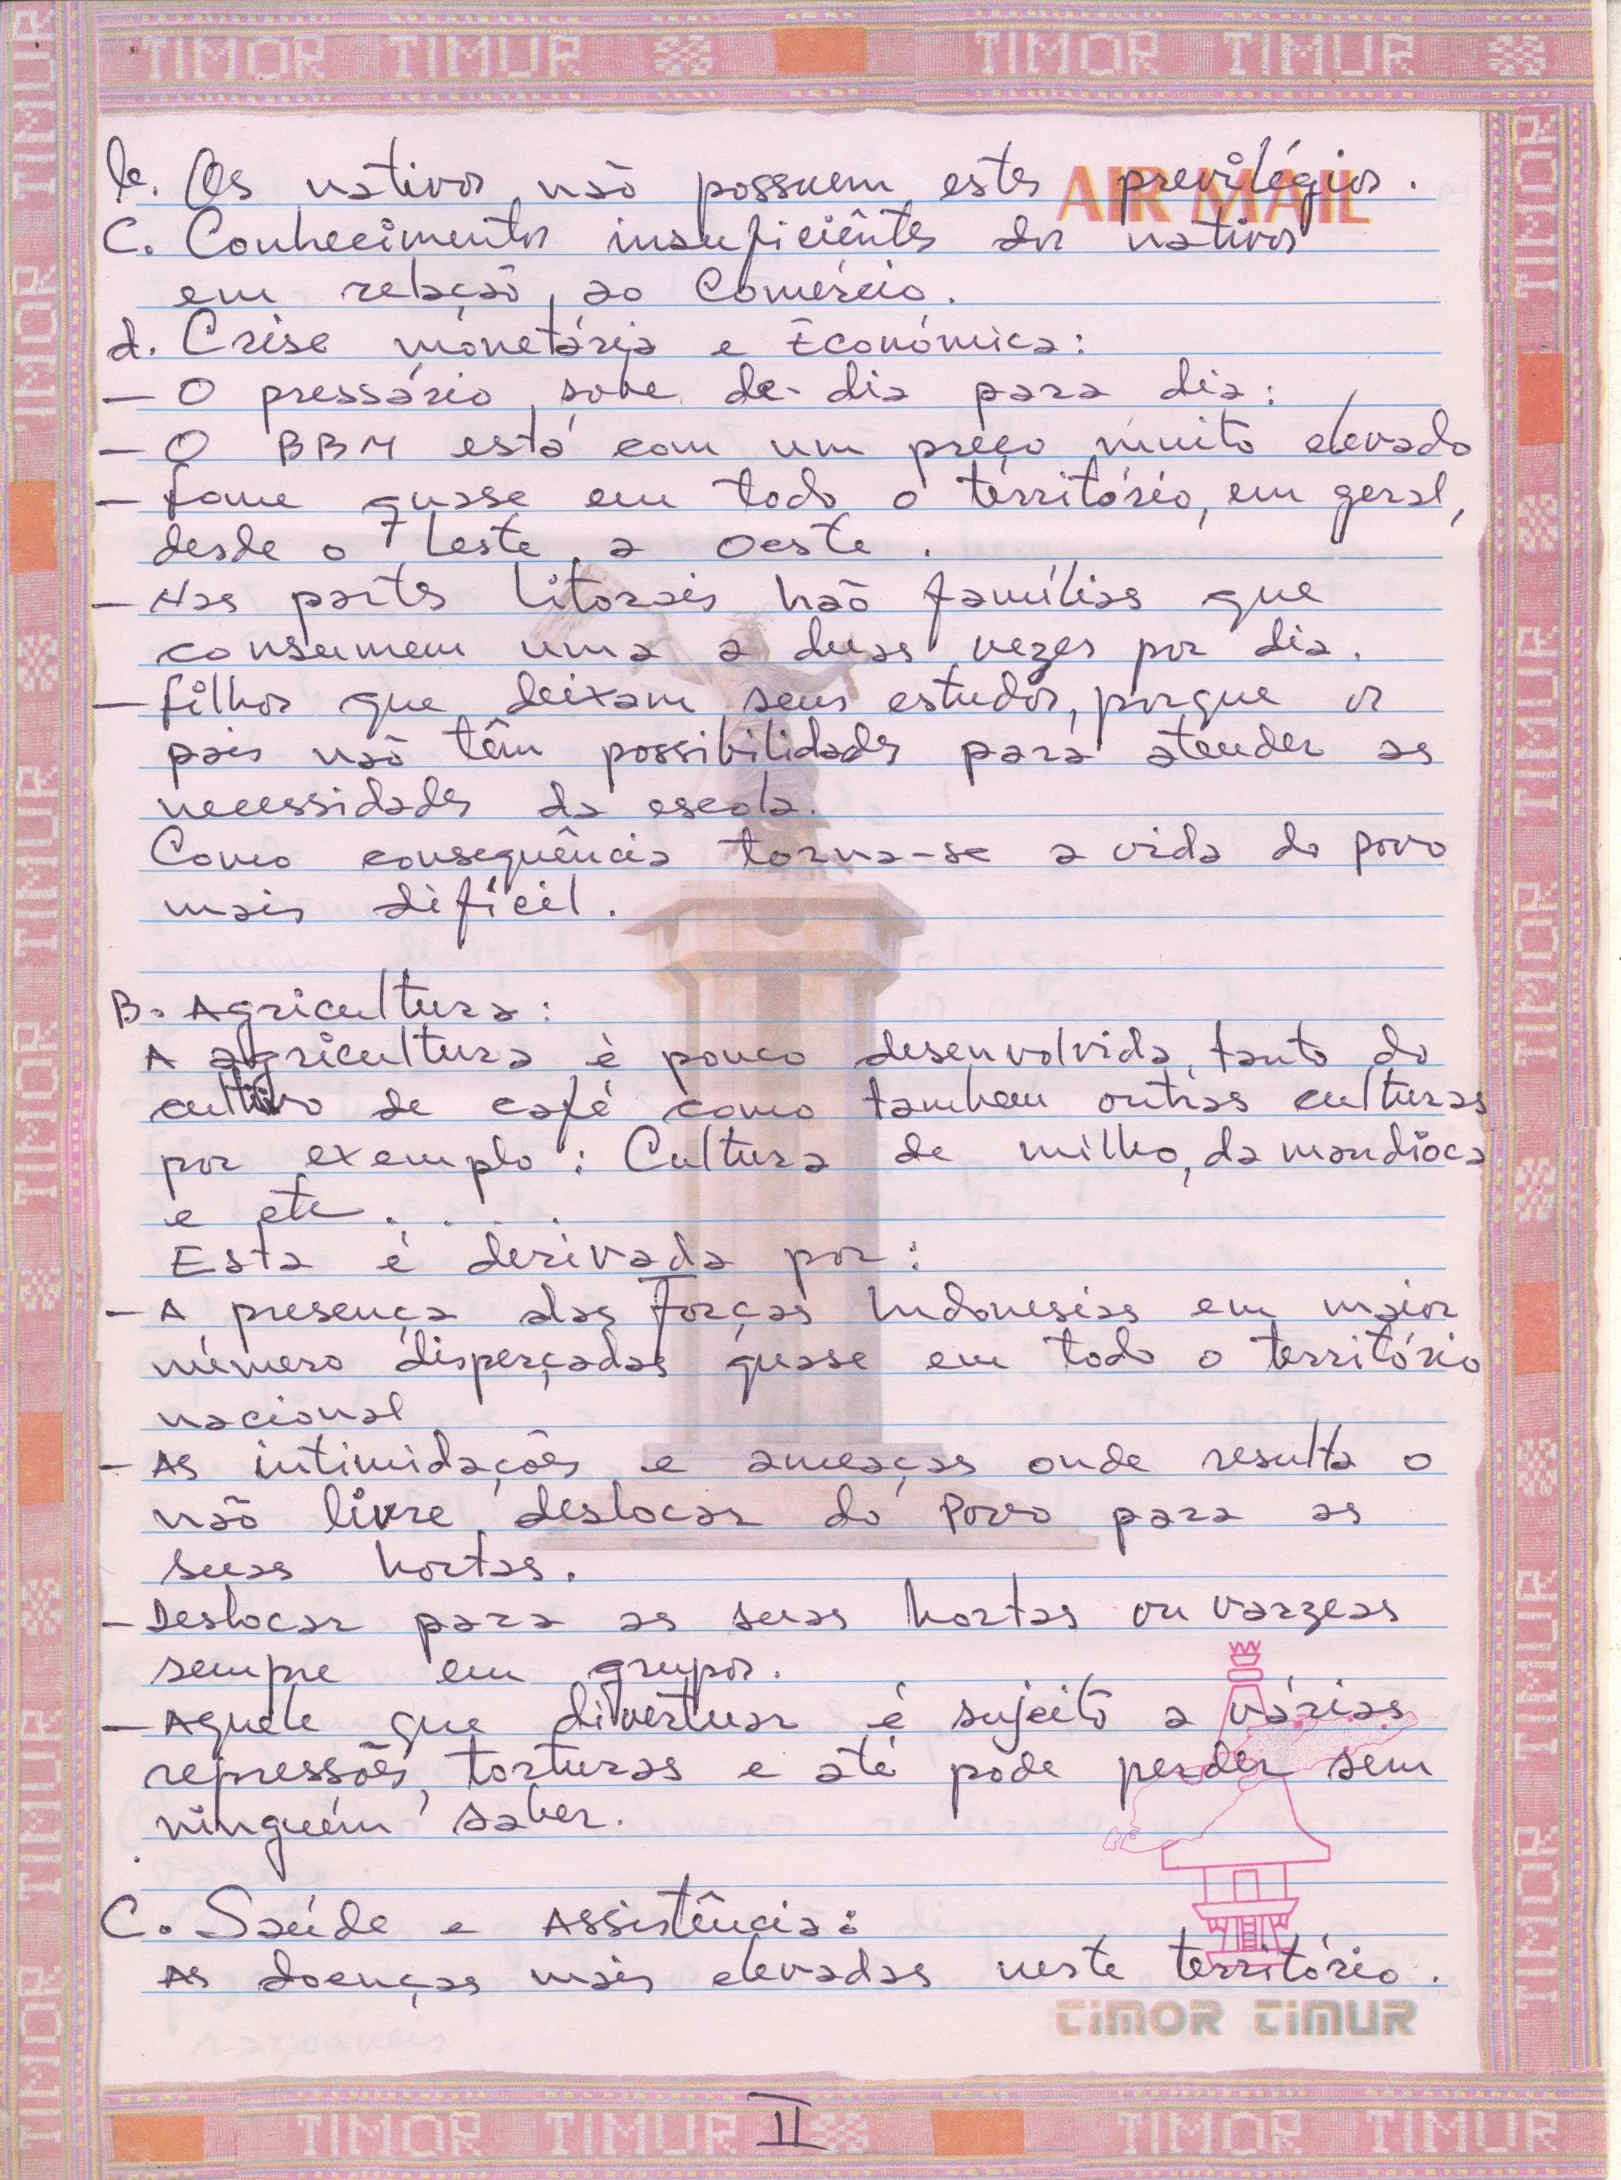 TIMOR TIMUR TIMOR TIMUR
AIR MAIL
b. Os nativos não possuem estes previlégios.
C. Conhecimentos insuficiêntes dos nativos
em relação ao Comércio.
d. Crise monetária e Económica:
- O pressário sobe de dia para dia:
- O BBM está com um preço muito elevado
- fome quase em todo o território, em geral,
desde o Leste a Oeste.
- Nas partes litorais hão famílias que
consumem uma a duas vezes por dia.
- filhos que deixam seus estudos, porque os
pais não têm possibilidades para atender as
necessidades da escola.
Como consequência torna-se a vida do povo
mais difícil.
B. Agricultura:
A agricultura é pouco desenvolvida, tanto do
cultivo de café como tambem outras culturas
por exemplo: Cultura de milho, da mandioca
e etc.....
Esta é derivada por:
- A presença das Forças Indonesias em maior
número disperçadas quase em todo o território
nacional
- As intimidações e ameaças onde resulta o
não livre deslocar do Povo para as
suas hortas.
- Deslocar para as suas hortas ou varzeas
sempre em grupos.
- Aquele que divertuar é sujeito a várias
repressões, torturas e até pode perder sem
ninguém saber.
C. Saúde e Assistência:
As doenças mais elevadas neste território.
TIMOR TIMUR
II
TIMOR TIMUR TIMOR TIMUR